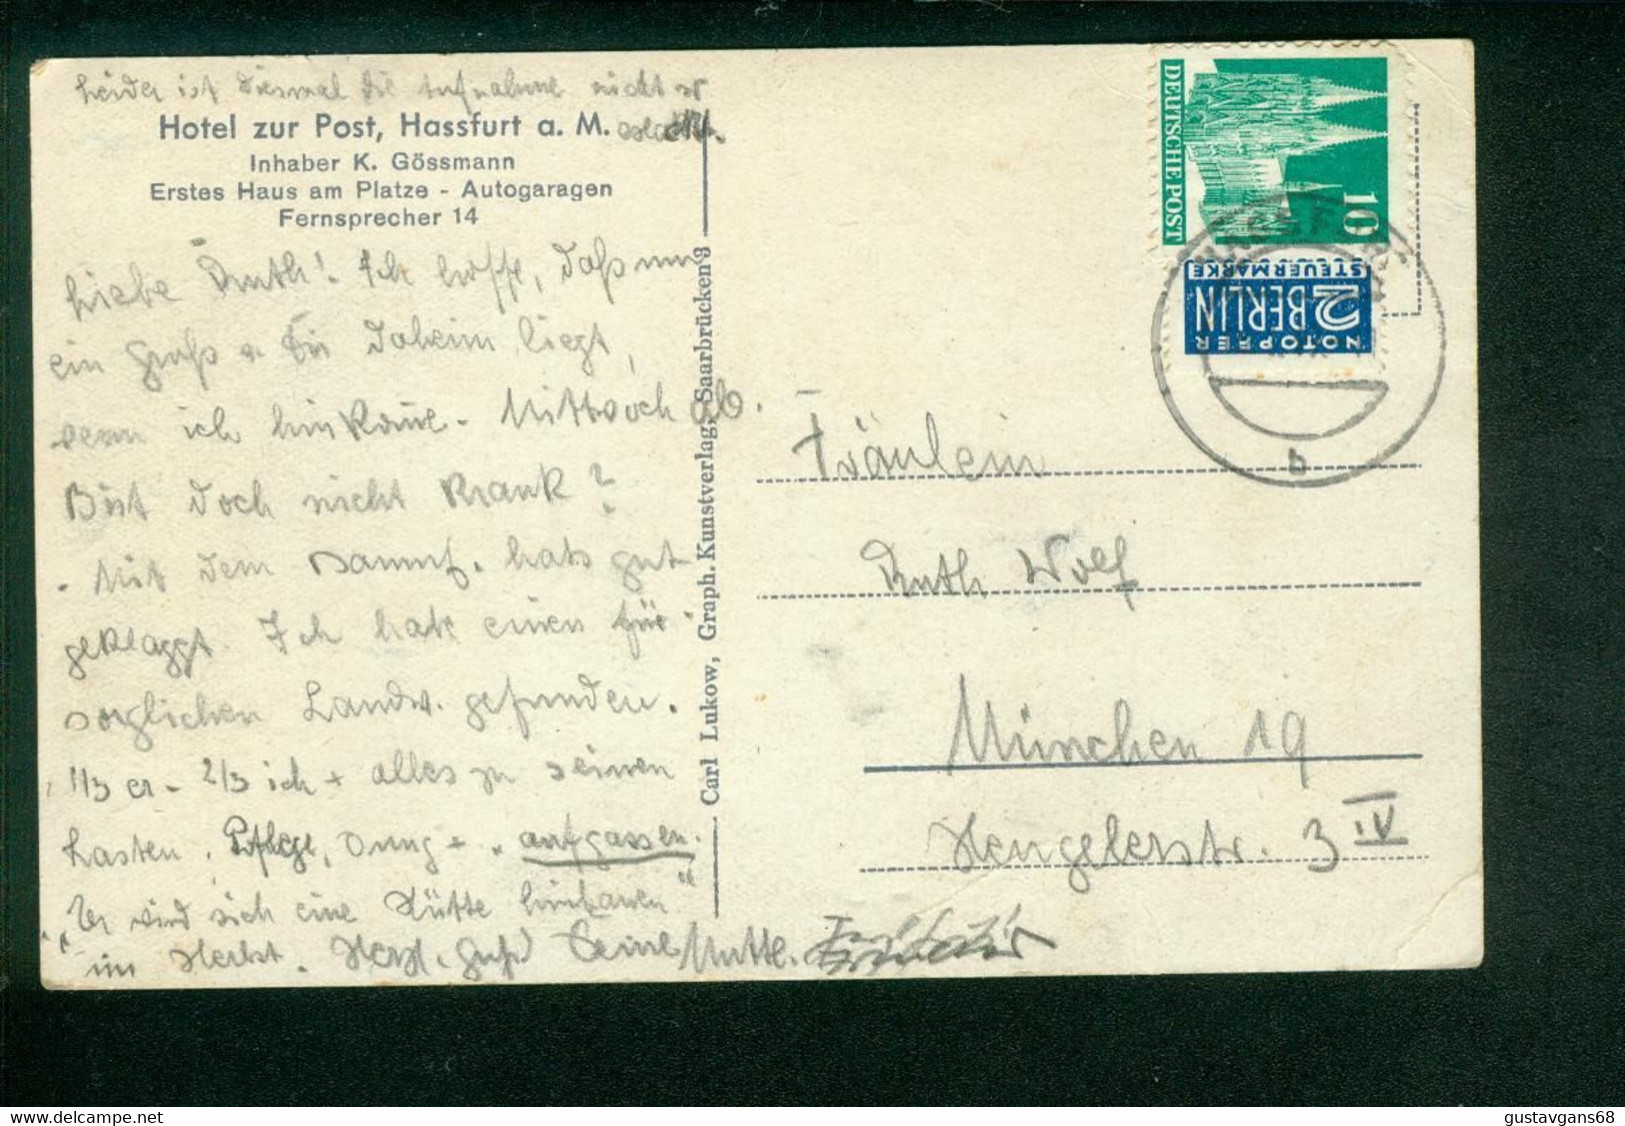 Leider ist diesmal die Aufnahme nicht
Hotel zur Post, Hassfurt a. M.
Inhaber K. Gössmann
Erstes Haus am Platze - Autogaragen
Fernsprecher 14
Liebe Ruth! Ich hoffe, daß nun
ein Gruß v. Dir daheim liegt,
wenn ich hinkomme. Mittwoch ab.
Bist doch nicht krank?
- Mit dem hats gut
geklappt. Ich habe einen für-
sorglichen Landw. gefunden.
1/3 er - 2/3 ich + alles zu seinen
Lasten. Pflege, Dung + "aufpassen.
"Er wird sich eine Hütte hinbauen"
im Herbst. Herzl. Gruß Deine Mutte.
Carl Lukow, Graph. Kunstverlag, Saarbrücken 3
DEUTSCHE POST
10
NOTOPFER
2 BERLIN
STEUERMARKE
b
Fräulein
Ruth Wolf
München 19
Hengelerstr. 3 IV
delcampe.net
gustavgans68